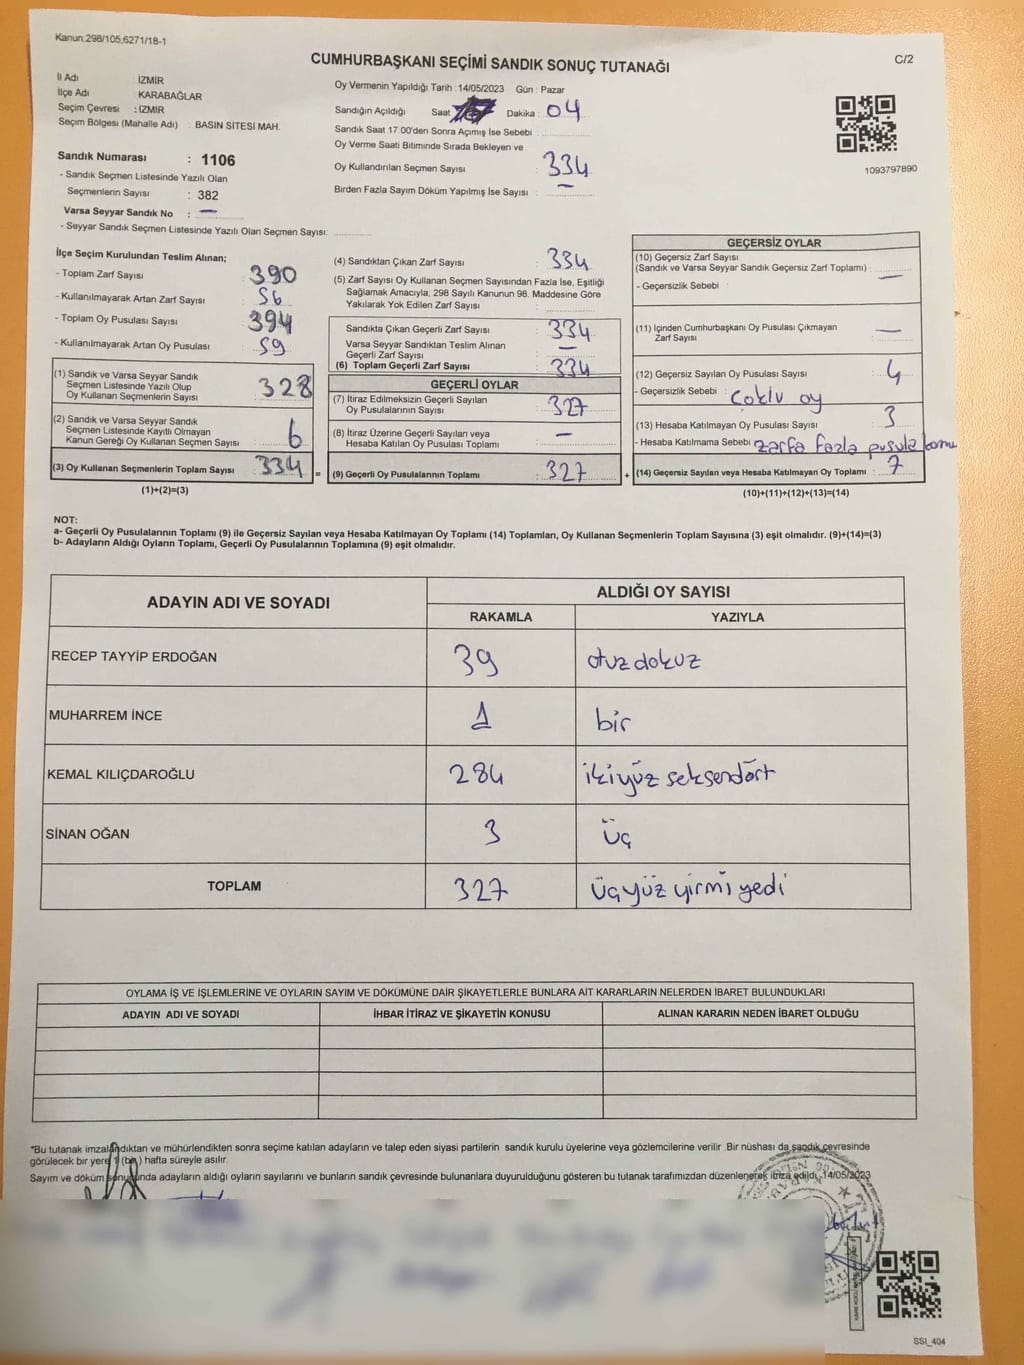 Kanun,298/105,6271/18-1
CUMHURBAŞKANI SEÇİMİ SANDIK SONUÇ TUTANAĞI
C/2
İl Adı : İZMİR
İlçe Adı : KARABAĞLAR
Seçim Çevresi : İZMİR
Seçim Bölgesi (Mahalle Adı) : BASIN SİTESİ MAH.
Sandık Numarası : 1106
- Sandık Seçmen Listesinde Yazılı Olan
Seçmenlerin Sayısı : 382
Varsa Seyyar Sandık No : —
- Seyyar Sandık Seçmen Listesinde Yazılı Olan Seçmen Sayısı:
Oy Vermenin Yapıldığı Tarih : 14/05/2023 Gün : Pazar
Sandığın Açıldığı Saat Dakika : 04
Sandık Saat 17 00'den Sonra Açımış İse Sebebi :
Oy Verme Saati Bitiminde Sırada Bekleyen ve
Oy Kullandırılan Seçmen Sayısı : 334
Birden Fazla Sayım Döküm Yapılmış İse Sayısı : —
1093797890
İlçe Seçim Kurulundan Teslim Alınan;
- Toplam Zarf Sayısı : 390
- Kullanılmayarak Artan Zarf Sayısı : 56
- Toplam Oy Pusulası Sayısı : 394
- Kullanılmayarak Artan Oy Pusulası : 59
(1) Sandık ve Varsa Seyyar Sandık
Seçmen Listesinde Yazılı Olup
Oy Kullanan Seçmenlerin Sayısı : 328
(2) Sandık ve Varsa Seyyar Sandık
Seçmen Listesinde Kayıtlı Olmayan
Kanun Gereği Oy Kullanan Seçmen Sayısı : 6
(3) Oy Kullanan Seçmenlerin Toplam Sayısı : 334
(1)+(2)=(3)
(4) Sandıktan Çıkan Zarf Sayısı : 334
(5) Zarf Sayısı Oy Kullanan Seçmen Sayısından Fazla İse, Eşitliği
Sağlamak Amacıyla; 298 Sayılı Kanunun 98. Maddesine Göre
Yakılarak Yok Edilen Zarf Sayısı :
Sandıkta Çıkan Geçerli Zarf Sayısı : 334
Varsa Seyyar Sandıktan Teslim Alınan
Geçerli Zarf Sayısı : —
(6) Toplam Geçerli Zarf Sayısı : 334
GEÇERLİ OYLAR
(7) İtiraz Edilmeksizin Geçerli Sayılan
Oy Pusulalarının Sayısı : 327
(8) İtiraz Üzerine Geçerli Sayılan veya
Hesaba Katılan Oy Pusulası Toplamı : —
= (9) Geçerli Oy Pusulalarının Toplamı : 327 +
GEÇERSİZ OYLAR
(10) Geçersiz Zarf Sayısı
(Sandık ve Varsa Seyyar Sandık Geçersiz Zarf Toplamı) : —
- Geçersizlik Sebebi :
(11) İçinden Cumhurbaşkanı Oy Pusulası Çıkmayan
Zarf Sayısı : —
(12) Geçersiz Sayılan Oy Pusulası Sayısı : 4
- Geçersizlik Sebebi : Çoklu oy
(13) Hesaba Katılmayan Oy Pusulası Sayısı : 3
- Hesaba Katılmama Sebebi : zarfa fazla pusula
(14) Geçersiz Sayılan veya Hesaba Katılmayan Oy Toplamı : 7
(10)+(11)+(12)+(13)=(14)
NOT:
a- Geçerli Oy Pusulalarının Toplamı (9) ile Geçersiz Sayılan veya Hesaba Katılmayan Oy Toplamı (14) Toplamları, Oy Kullanan Seçmenlerin Toplam Sayısına (3) eşit olmalıdır. (9)+(14)=(3)
b- Adayların Aldığı Oyların Toplamı, Geçerli Oy Pusulalarının Toplamına (9) eşit olmalıdır.
ADAYIN ADI VE SOYADI
ALDIĞI OY SAYISI
RAKAMLA YAZIYLA
RECEP TAYYİP ERDOĞAN 39 otuzdokuz
MUHARREM İNCE 1 bir
KEMAL KILIÇDAROĞLU 284 ikiyüz seksendört
SİNAN OĞAN 3 üç
TOPLAM 327 üçyüz yirmi yedi
OYLAMA İŞ VE İŞLEMLERİNE VE OYLARIN SAYIM VE DÖKÜMÜNE DAİR ŞİKAYETLERLE BUNLARA AİT KARARLARIN NELERDEN İBARET BULUNDUKLARI
ADAYIN ADI VE SOYADI İHBAR İTİRAZ VE ŞİKAYETİN KONUSU ALINAN KARARIN NEDEN İBARET OLDUĞU
*Bu tutanak imzalandıktan ve mühürlendikten sonra seçime katılan adayların ve talep eden siyasi partilerin sandık kurulu üyelerine veya gözlemcilerine verilir Bir nüshası da sandık çevresinde
görülecek bir yere 1 (bir) hafta süreyle asılır.
Sayım ve döküm sonucunda adayların aldığı oyların sayılarını ve bunların sandık çevresinde bulunanlara duyurulduğunu gösteren bu tutanak tarafımızdan düzenlenerek imza edildi. 14/05/2023
SSI_404